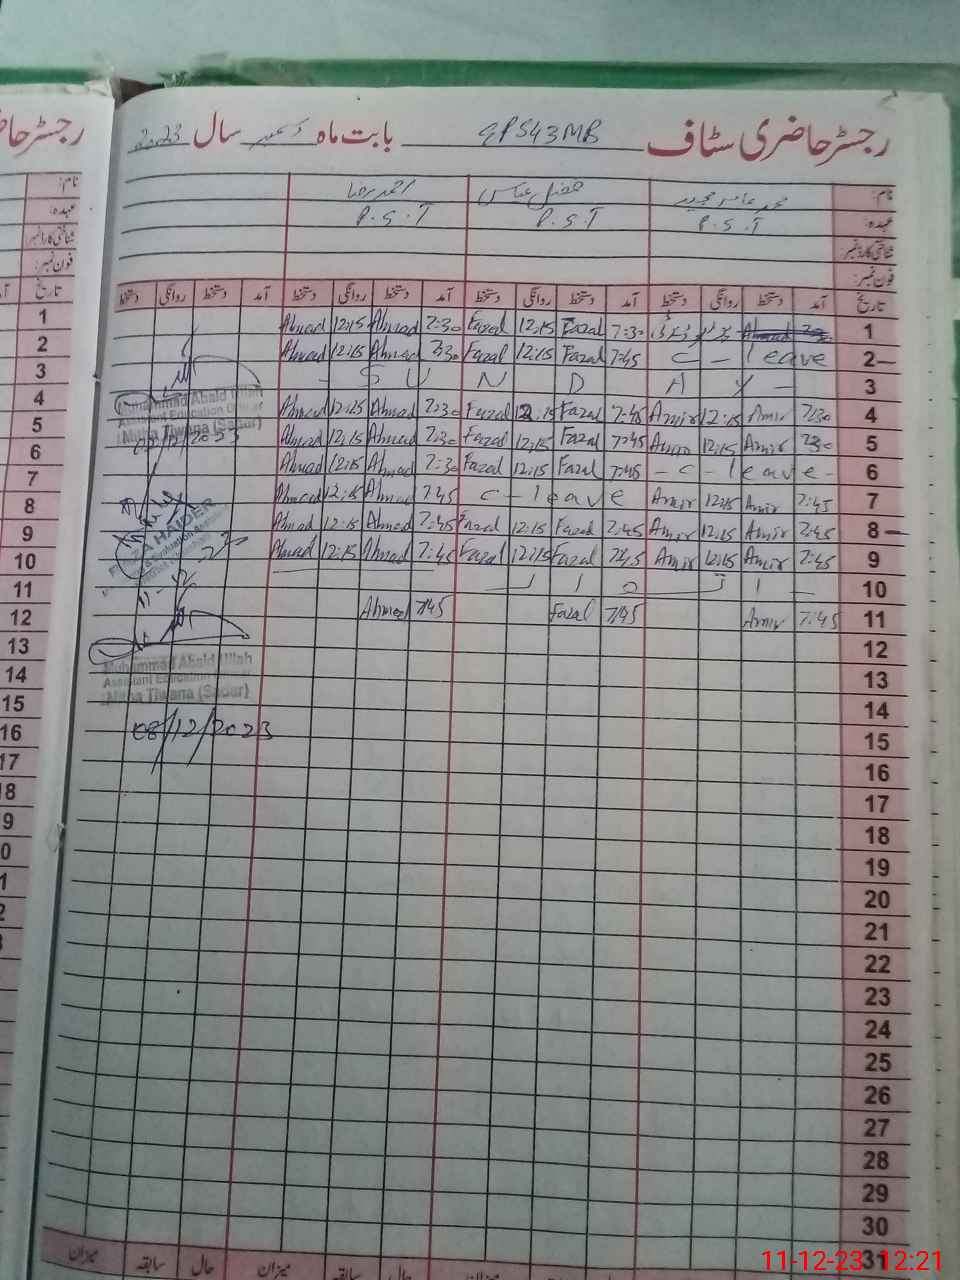 رجسٹر حاضری سٹاف GPS 43 MB بابت ماہ دسمبر سال 2023
نام: محمد عامر مجید فضل عباس احمد رضا
عہدہ: P.S.T P.S.T P.S.T
شناختی کارڈ نمبر:
فون نمبر:
تاریخ آمد دستخط روانگی دستخط آمد دستخط روانگی دستخط آمد دستخط روانگی دستخط آمد دستخط روانگی دستخط
1 Ahmad 12:15 Ahmad 7:30 Fazal 12:15 Fazal 7:30 1
2 Ahmad 12:15 Ahmad 7:30 Fazal 12:15 Fazal 7:45 C - leave 2
3 - S U N D A Y - 3
4 Ahmad 12:15 Ahmad 7:30 Fazal 12:15 Fazal 7:45 Amir 12:15 Amir 7:30 4
5 Ahmad 12:15 Ahmad 7:30 Fazal 12:15 Fazal 7:45 Amir 12:15 Amir 7:30 5
6 Ahmad 12:15 Ahmad 7:30 Fazal 12:15 Fazal 7:45 - C - leave - 6
7 Ahmad 12:15 Ahmad 7:45 C - leave Amir 12:15 Amir 7:45 7
8 Ahmad 12:15 Ahmad 7:45 Fazal 12:15 Fazal 7:45 Amir 12:15 Amir 7:45 8
9 Ahmad 12:15 Ahmad 7:45 Fazal 12:15 Fazal 7:45 Amir 12:15 Amir 7:45 9
10 10
11 Ahmad 7:45 Fazal 7:45 Amir 7:45 11
12 12
13 13
14 14
15 15
16 16
17 17
18
19
20
21
22
23
24
25
26
27
28
29
30
31
Muhammad Abaid Ullah
Assistant Education Officer
Mitha Tiwana (Sadar)
HAIDER
Muhammad Abaid Ullah
Assistant Education Officer
Mitha Tiwana (Sadar)
08/12/2023
میزان حال سابقہ میزان حال سابقہ میزان
11-12-23 12:21